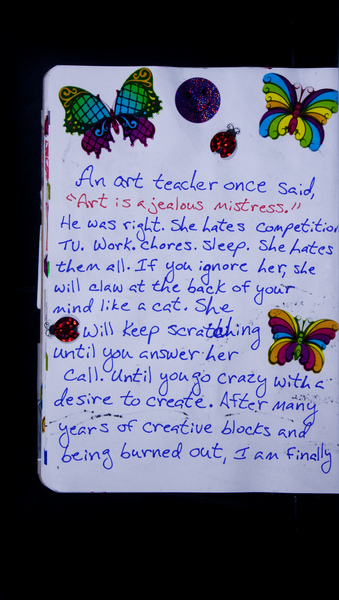 An art teacher once said,
"Art is a jealous mistress."
He was right. She hates competition
TV. Work. Chores. Sleep. She hates
them all. If you ignore her, she
will claw at the back of your
mind like a cat. She
will keep scratching
until you answer her
call. Until you go crazy with a
desire to create. After many
years of creative blocks and
being burned out, I am finally